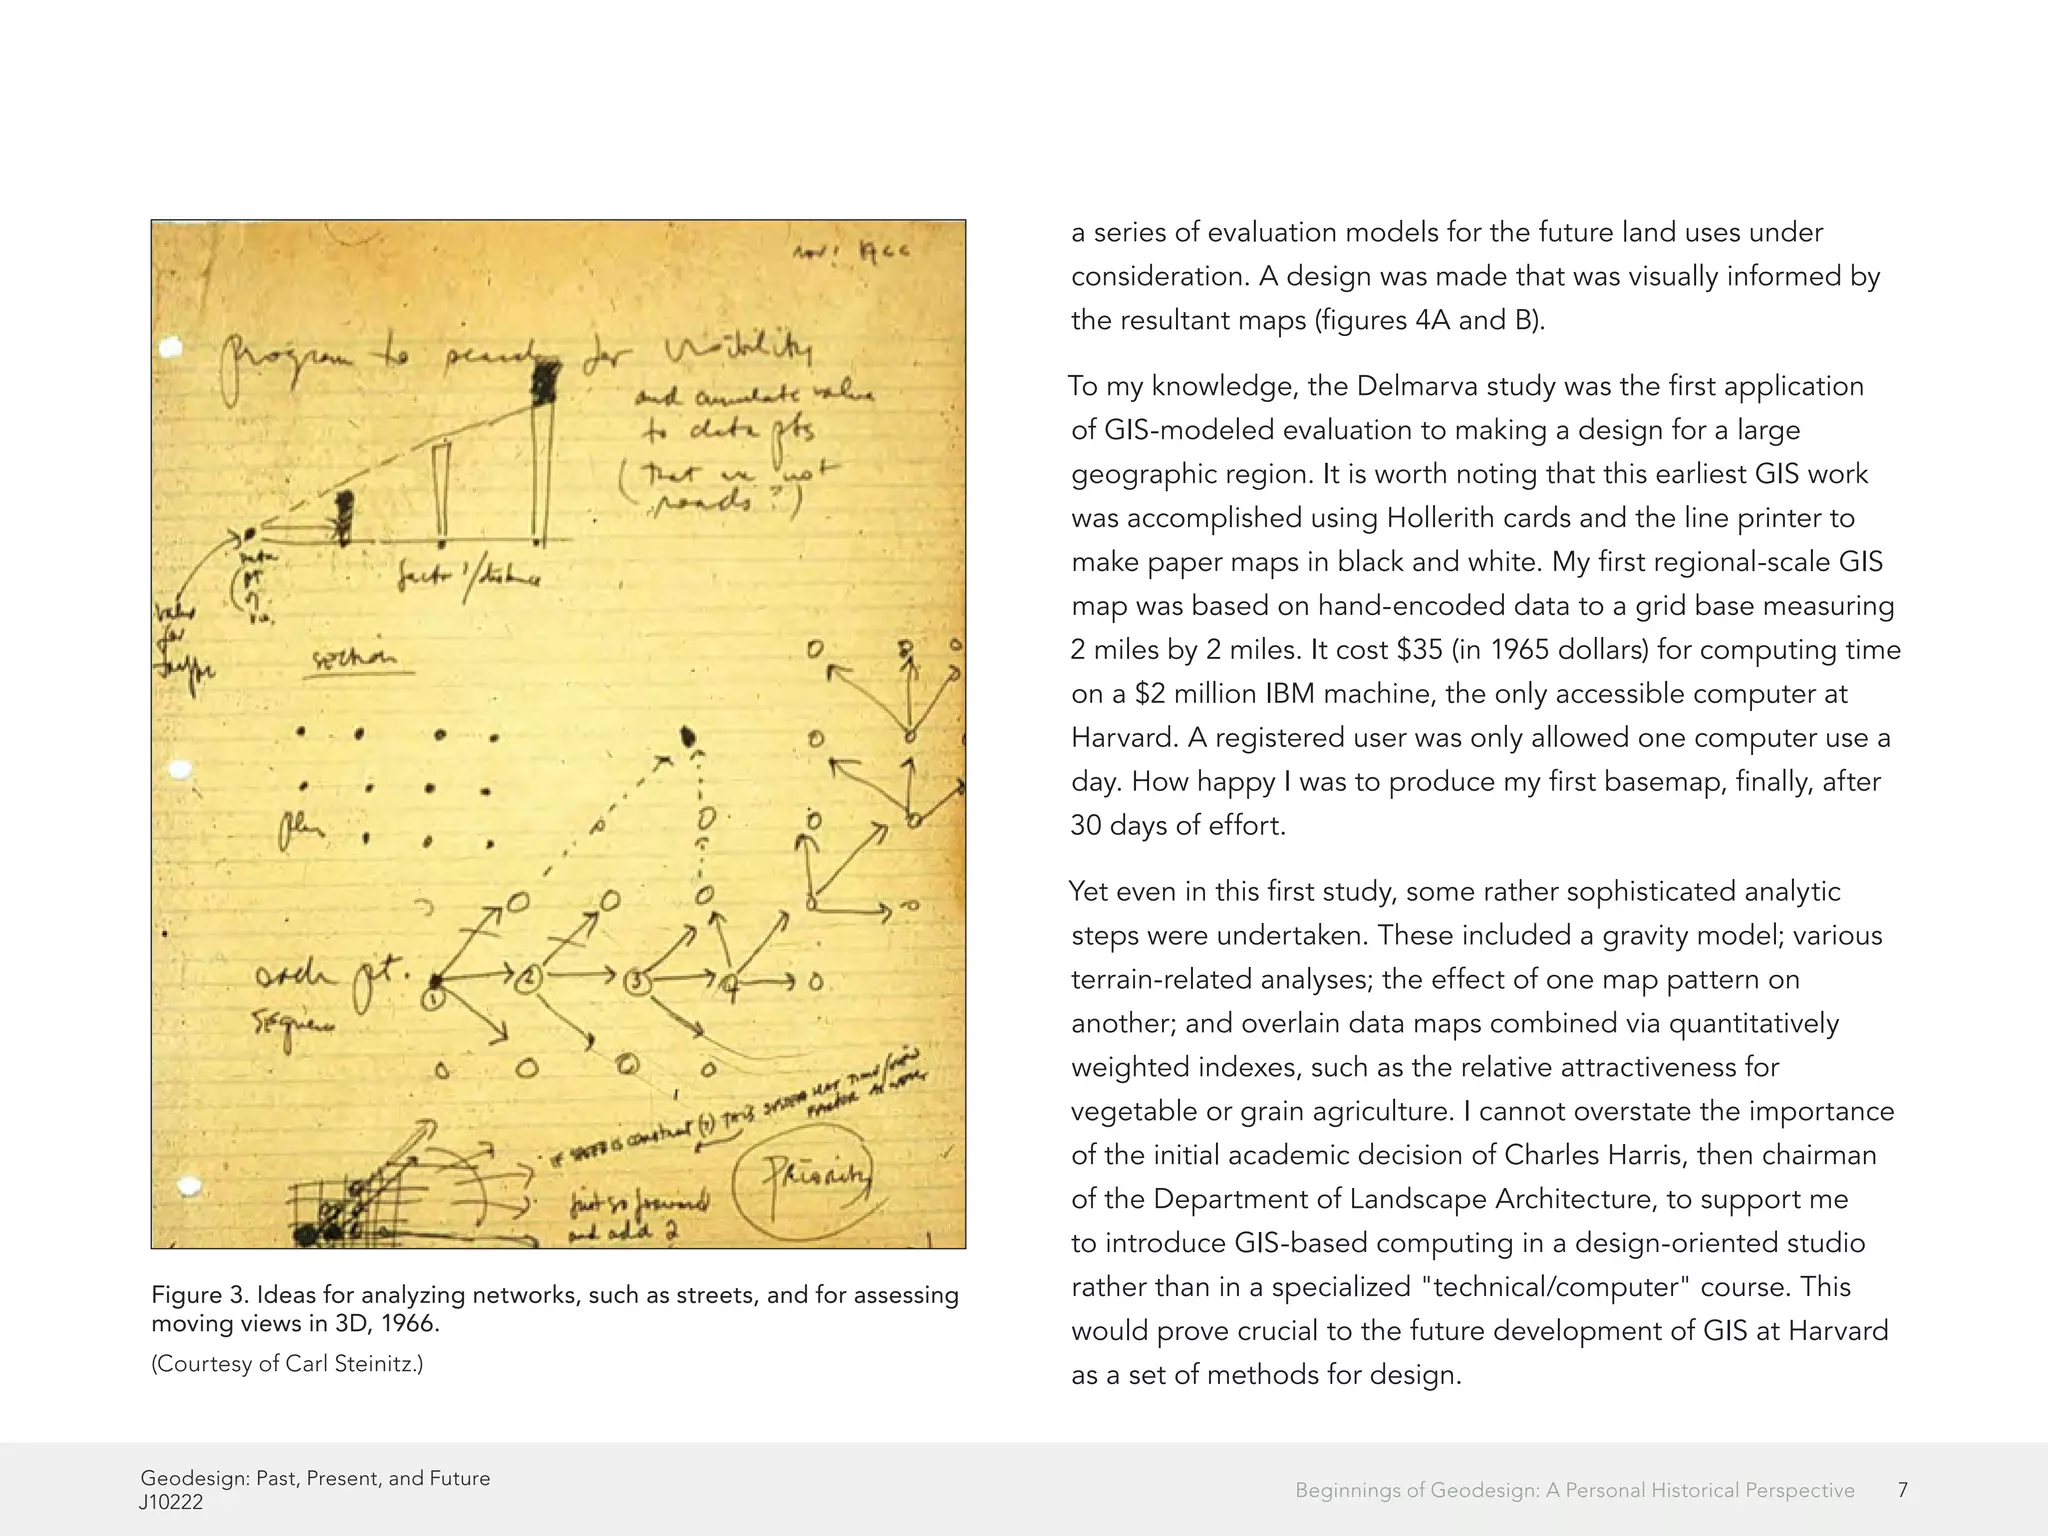 nov. 1966
program to search for visibility
and cumulate value
to data pts
(that are not
roads?)
data
pt
of
value
for
factor 1/distance
section
plan
each pt.
sequence
IF SPEED IS constant (1) THIS SYSTEM HAS TIME/
FACTOR AS WELL
Priority
just go forward
and add 2
1
2
3
4
Figure 3. Ideas for analyzing networks, such as streets, and for assessing
moving views in 3D, 1966.
(Courtesy of Carl Steinitz.)
a series of evaluation models for the future land uses under
consideration. A design was made that was visually informed by
the resultant maps (figures 4A and B).
To my knowledge, the Delmarva study was the first application
of GIS-modeled evaluation to making a design for a large
geographic region. It is worth noting that this earliest GIS work
was accomplished using Hollerith cards and the line printer to
make paper maps in black and white. My first regional-scale GIS
map was based on hand-encoded data to a grid base measuring
2 miles by 2 miles. It cost $35 (in 1965 dollars) for computing time
on a $2 million IBM machine, the only accessible computer at
Harvard. A registered user was only allowed one computer use a
day. How happy I was to produce my first basemap, finally, after
30 days of effort.
Yet even in this first study, some rather sophisticated analytic
steps were undertaken. These included a gravity model; various
terrain-related analyses; the effect of one map pattern on
another; and overlain data maps combined via quantitatively
weighted indexes, such as the relative attractiveness for
vegetable or grain agriculture. I cannot overstate the importance
of the initial academic decision of Charles Harris, then chairman
of the Department of Landscape Architecture, to support me
to introduce GIS-based computing in a design-oriented studio
rather than in a specialized "technical/computer" course. This
would prove crucial to the future development of GIS at Harvard
as a set of methods for design.
Geodesign: Past, Present, and Future
J10222
Beginnings of Geodesign: A Personal Historical Perspective 7